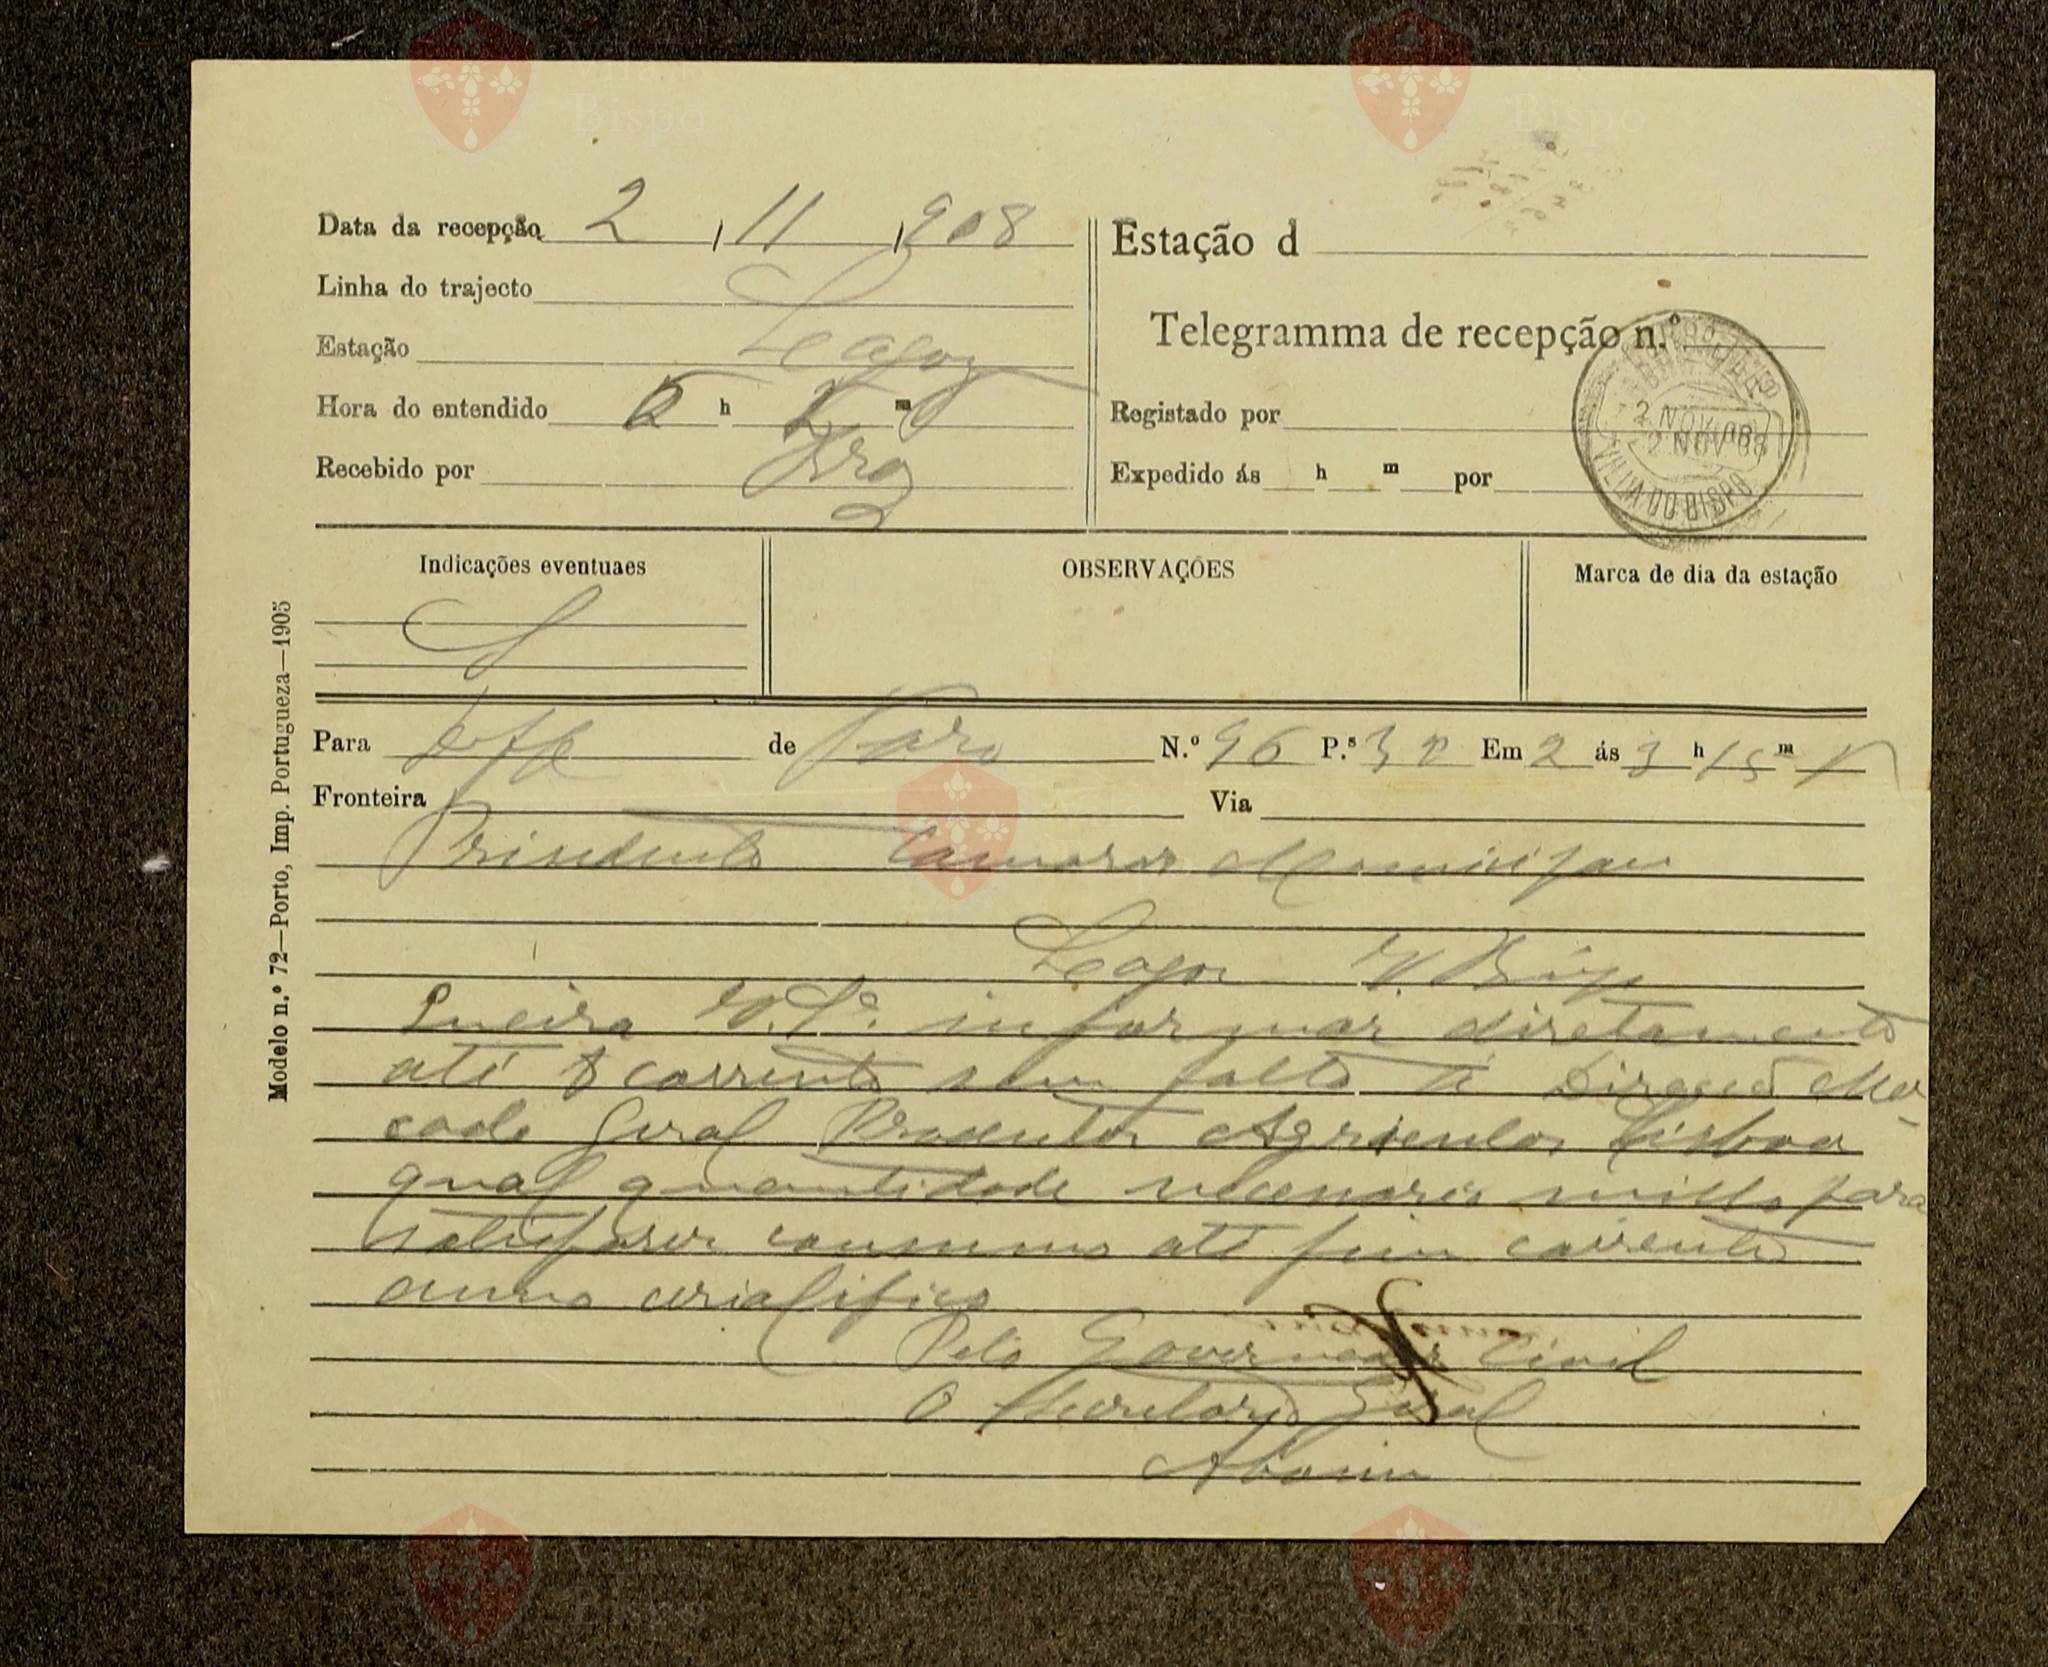 Data da recepção 2 / 11 / 908
Linha do trajecto
Estação Lagos
Hora do entendido h m
Recebido por
Estação d
Telegramma de recepção n.º
Registado por
Expedido ás h m por
2 NOV 08
VILLA DO BISPO
Indicações eventuaes
OBSERVAÇÕES
Marca de dia da estação
S
Para de Faro N.º 96 P.s 3 Em 2 ás 3 h 15 m
Fronteira Via
Presidente Camaras Municipaes
Lagos V. Bispo
Queira V. S.ª informar diretamente
até 8 corrente sem falta á Direção Mer-
cado Geral Productos Agricolas Lisboa
qual quantidade necessaria milho para
satisfazer consumo até fim corrente
anno cerialifico
Pelo Governador Civil
O Secretario Geral
Aboim
Modelo n.º 72—Porto, Imp. Portugueza—1905
Vila do
Bispo
Bispo
Bispo
Bispo